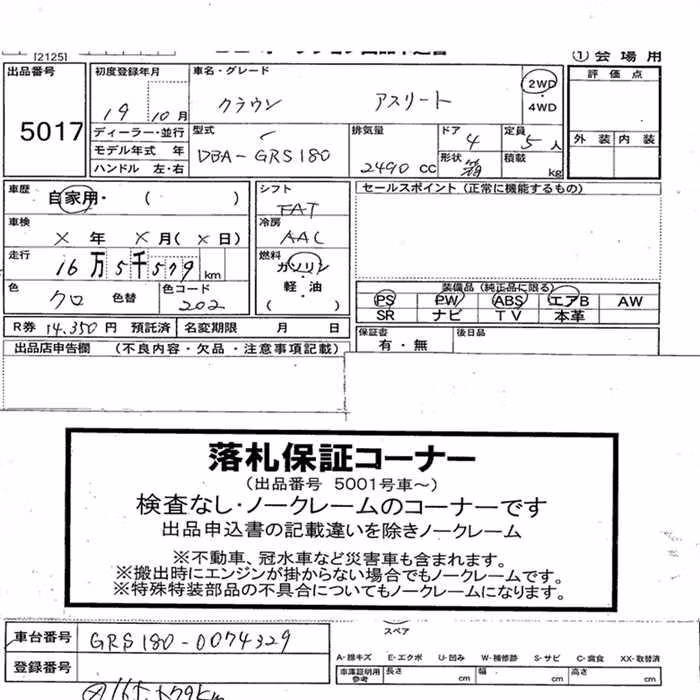 [2125]
①会場用
出品番号
5017
初度登録年月
19 10月
車名・グレード
クラウン アスリート
2WD
・
4WD
評価点
外装 内装
ディーラー・並行
モデル年式 年
ハンドル 左・右
型式
DBA-GRS180
排気量
2490 CC
ドア
4
形状
箱
定員
5人
積載
kg
車歴
自家用・( )
車検
× 年 × 月(×日)
走行
16万5千579km
色
クロ
色替
色コード
202
シフト
FAT
冷房
AAC
燃料
ガソリン
軽・油
( )
セールスポイント(正常に機能するもの)
装備品(純正品に限る)
PS PW ABS エアB AW
SR ナビ TV 本革
R券 14,350円 預託済
名変期限 月 日
保証書
有・無
後日品
出品店申告欄 (不良内容・欠品・注意事項記載)
落札保証コーナー
(出品番号 5001号車～)
検査なし・ノークレームのコーナーです
出品申込書の記載違いを除きノークレーム
※不動車、冠水車など災害車も含まれます。
※搬出時にエンジンが掛からない場合でもノークレームです。
※特殊特装部品の不具合についてもノークレームになります。
車台番号
GRS180-0074329
登録番号
スペア
A-線キズ E-エクボ U-凹み W-補修跡 S-サビ C-腐食 XX-取替済
車庫証明用
参考
長さ cm
幅 cm
高さ cm
165,579km